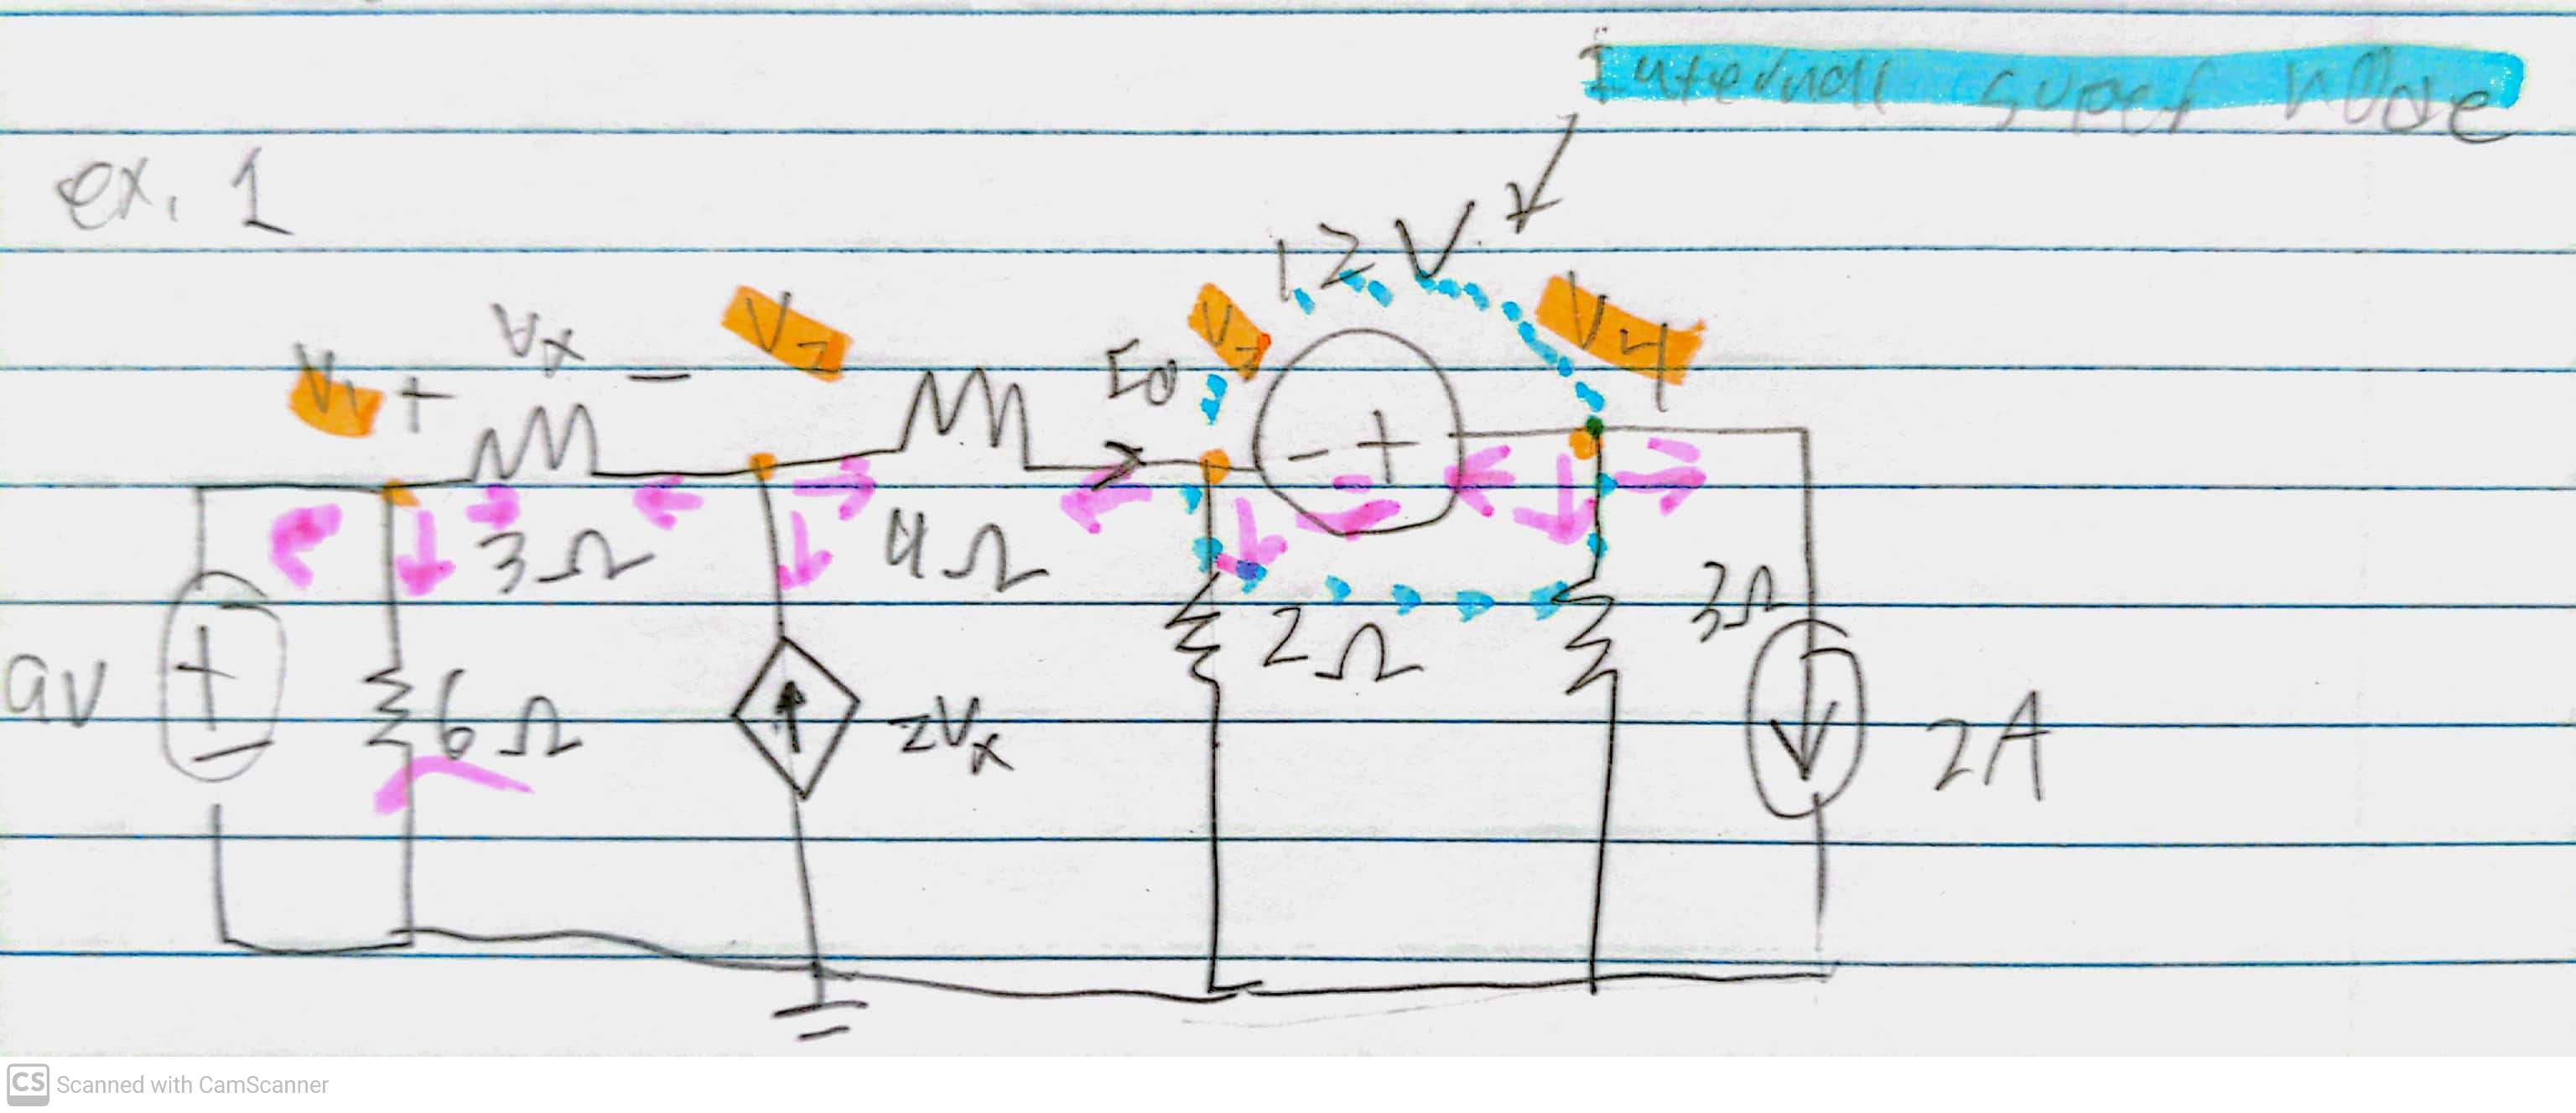 Internall super node
ex. 1
12 V
V1 + Vx - V2
Io V3
V4
- +
3Ω
4Ω
9V + -
6Ω
2Vx
2Ω
3Ω
2A
CS Scanned with CamScanner